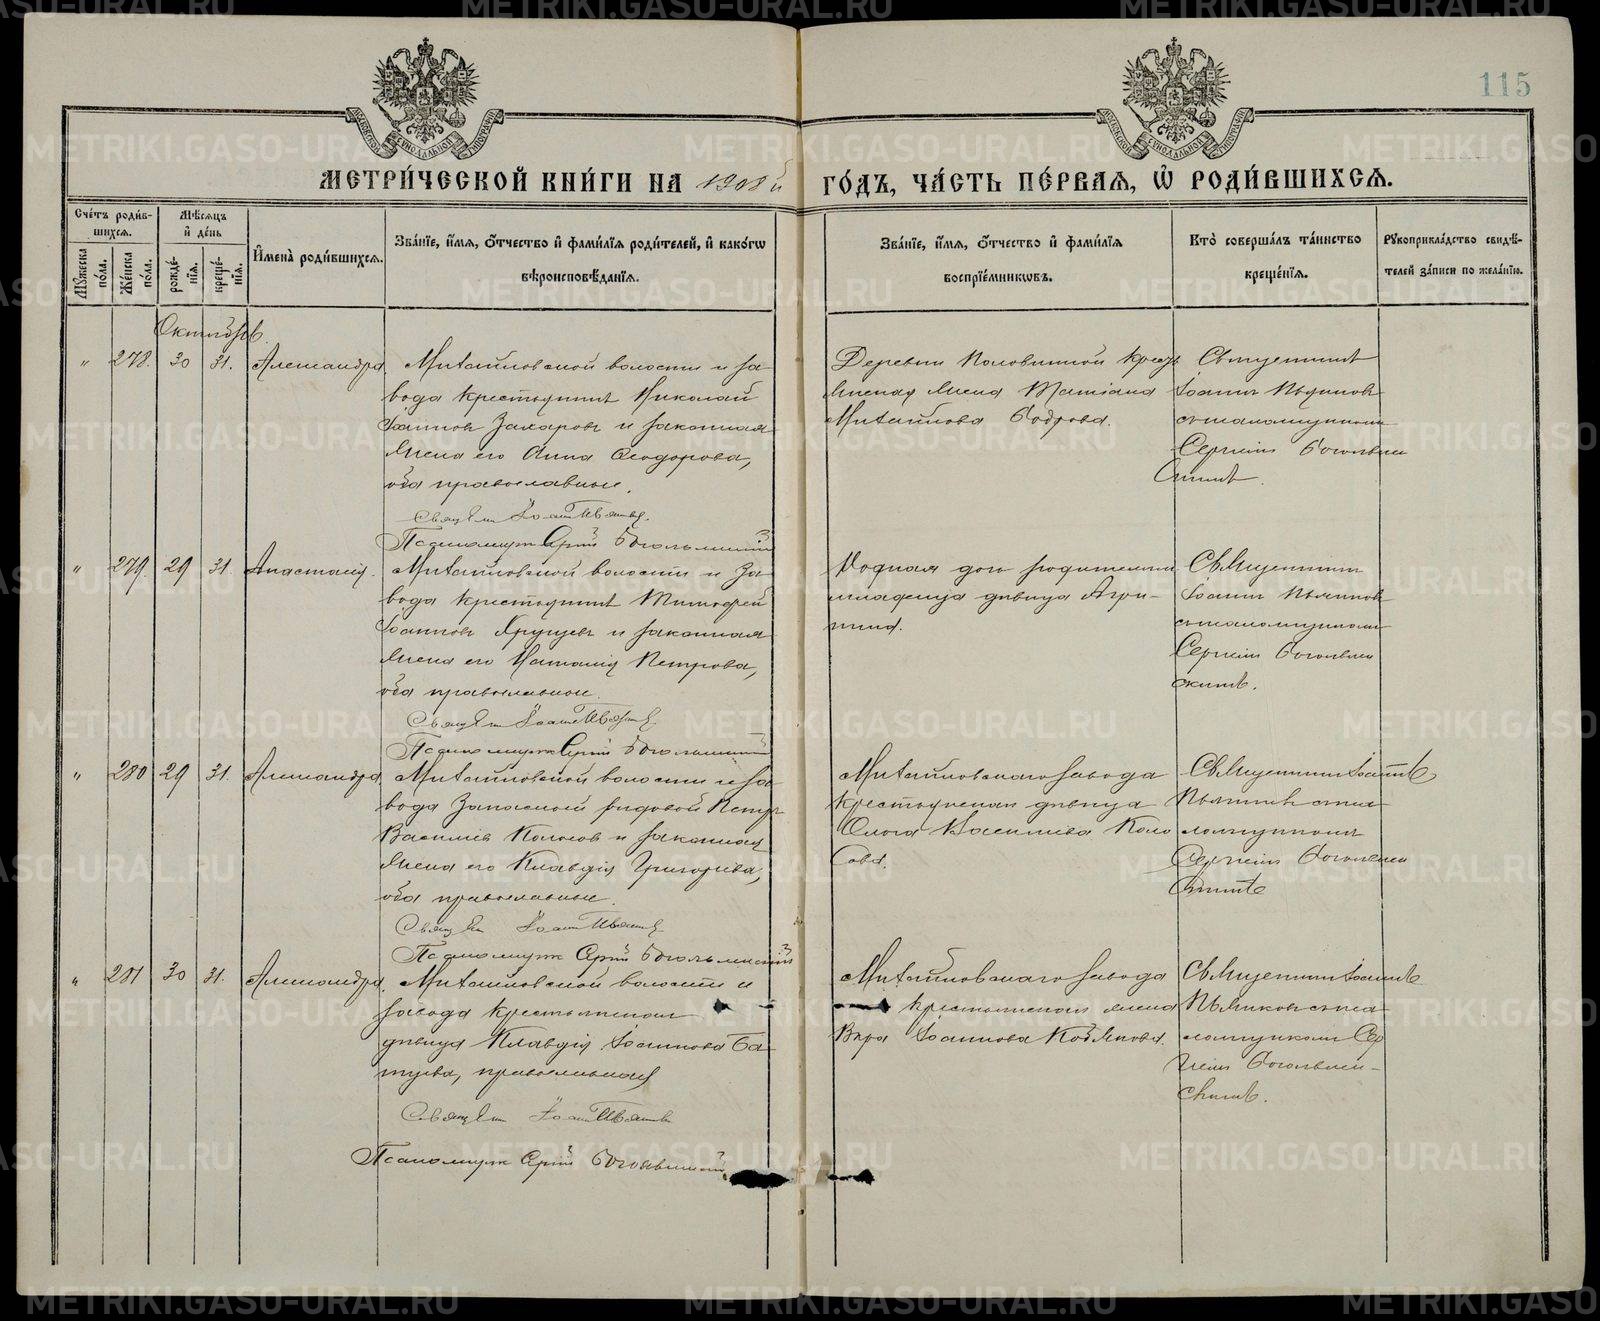 115
МЕТРИ́ЧЕСКОЙ КНИ́ГИ НА 1908й ГО́ДЪ, ЧА́СТЬ ПЕ́РВАЯ, Ѿ РОДИ́ВШИХСЯ.
Сче́тъ роди́вшихся.
Мѣ́сяцъ и де́нь
Мужеска по́ла.
Же́нска по́ла.
рожде́нія.
креще́нія.
И҆мена̀ роди́вшихся.
Зва́нїе, и҆́мя, ѻ҆́тчество и҆ фами́лїя роди́телей, и҆ како́гѡ
вѣроисповѣ́данїя.
Зва́нїе, и҆́мя, ѻ҆́тчество и҆ фами́лїя
воспрїе́мникѡвъ.
Кто̀ соверша́лъ та́инство
креще́нїя.
Рꙋкоприкла́дство свидѣ́-
телей за́писи по жела́нїю.
Октябрь.
" 278. 30 31. Александра.
Михайловской волости и за-
вода крестьянинъ Николай
Іоанновъ Захаровъ и законная
жена его Анна Ѳеодорова,
оба православные.
Священ Іоаннъ
Псаломщик Сергій Богоявленскій
Деревни Половинной крестьянская жена
Михайлова Бодрова.
Священникъ
Іоаннъ
съ псаломщикомъ
Сергіемъ Богоявлен
скимъ.
" 279. 29 31. Анастасія.
Михайловской волости и за-
вода крестьянинъ Тимофей
Іоанновъ и законная
жена его Наталія Петрова,
оба православные.
Священ Іоаннъ
Псаломщик Сергій Богоявленскій
Родная дочь родителей
младенца дѣвица Агри-
пина.
Священникъ
Іоаннъ
съ псаломщикомъ
Сергіемъ Богоявлен
скимъ.
" 280 29 31. Александра
Михайловской волости и за-
вода Запасной рядовой Петръ
Василіевъ Колосовъ и законная
жена его Клавдія Григорьева,
оба православные.
Священ Іоаннъ
Псаломщик Сергій Богоявленскій
Михайловскаго завода
крестьянская дѣвица
Ольга Василіева Коло
сова.
Священникъ Іоаннъ
съ пса
ломщикомъ
Сергіемъ Богоявлен
скимъ
" 281 30 31. Александра.
Михайловской волости и
завода крестьянская
дѣвица Клавдія Іоаннова Ба-
туева, православная
Священ Іоаннъ
Псаломщик Сергій Богоявленскій
Михайловскаго завода
крестьянская жена
Вѣра Іоаннова
Священникъ Іоаннъ
съ пса
ломщикомъ Сер
гіемъ Богоявлен-
скимъ.
METRIKI.GASO-URAL.RU